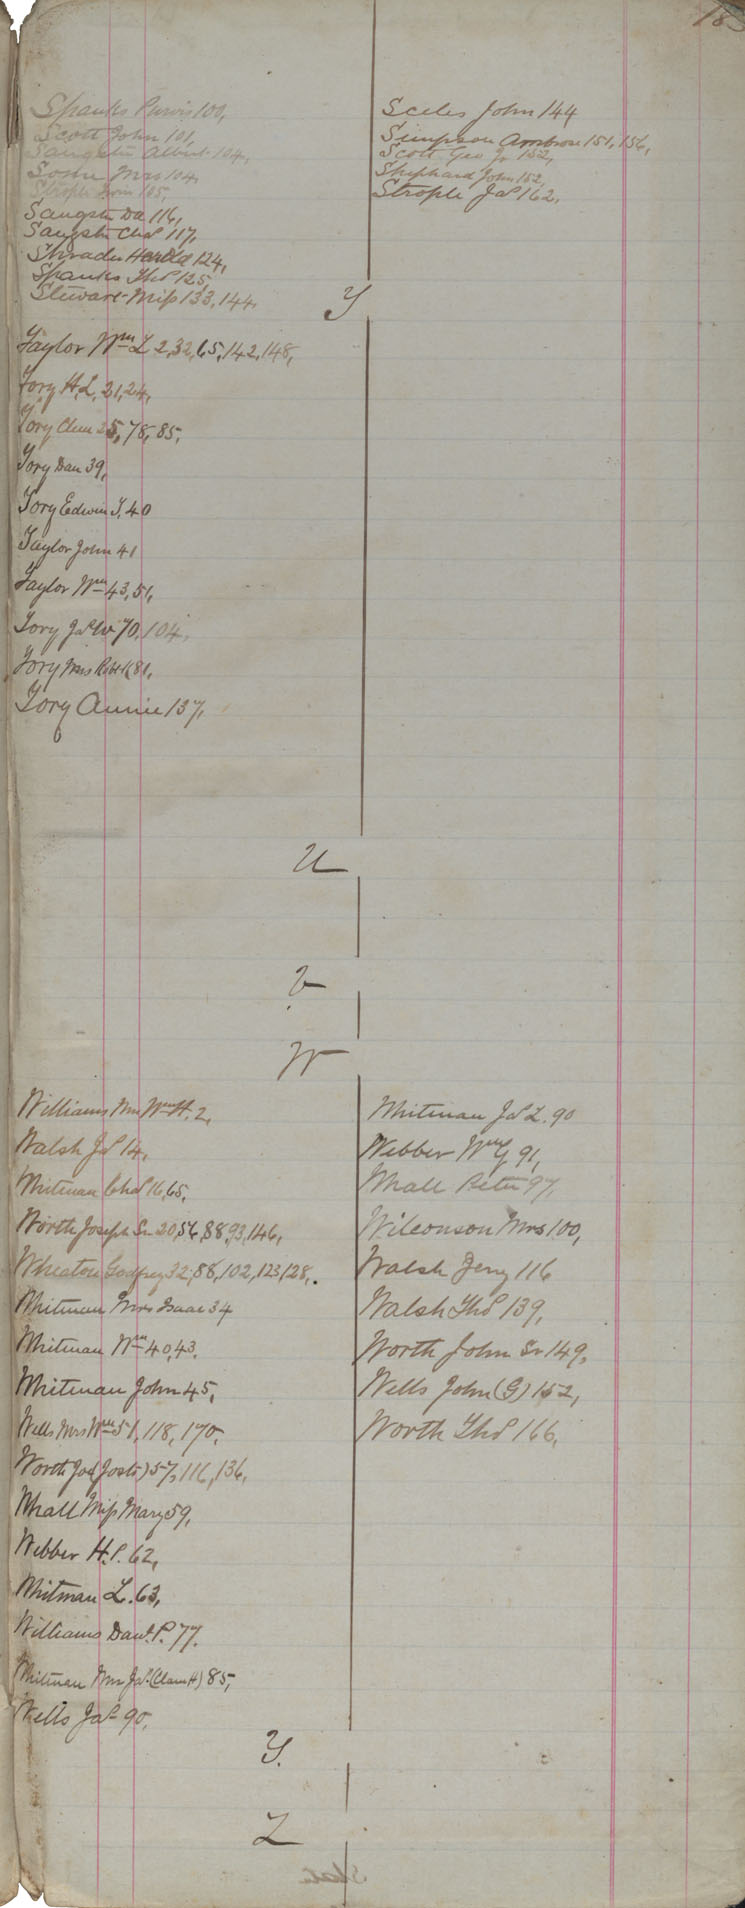 18
Spanks Purvis 100,
Scott John 101,
Sangster Albert 104,
Mrs 104,
Strople 105,
Sangster Da 116,
Sangster Chas 117,
Shrader Harold 124,
Spanks Thos 125,
Stewart Miss 133, 144,
Sceles John 144
Simpson Ambrose 151, 156,
Scott Geo Jr 152,
Shephard John 152,
Strople Jas 162,
T
Taylor Wm L 2, 32, 65, 142, 148,
Tory H.L. 21, 24,
Tory Clem 25, 78, 85,
Tory Dan 39,
Tory Edwin T. 40
Taylor John 41
Taylor Wm 43, 51,
Tory Jas W 70, 104,
Tory Mrs Robt K 81,
Tory Annie 137,
U
V
W
Williams Mrs Wm H. 2,
Walsh Jas 14,
Whitman Chas 16, 65,
Worth Joseph Sr 20, 56, 88, 93, 146,
Wheaton Godfrey 32, 88, 102, 123, 128,
Whitman Mrs Isaac 34
Whitman Wm 40, 43.
Whitman John 45,
Wells Mrs Wm 51, 118, 170,
Worth Jos (Jost) 57, 116, 136,
Whall Miss Mary 59,
Webber H.P. 62,
Whitman L. 63,
Williams Danl. P. 77.
Whitman Mrs Jas. (Clam H) 85,
Wells Jas 90,
Whitman Jas L. 90
Webber Wm G 91,
Whall Peter 97,
Wilconson Mrs 100,
Walsh Jerry 116
Walsh Thos 139,
Worth John Sr 149,
Wells John (G) 152,
Worth Thos 166,
Y.
Z